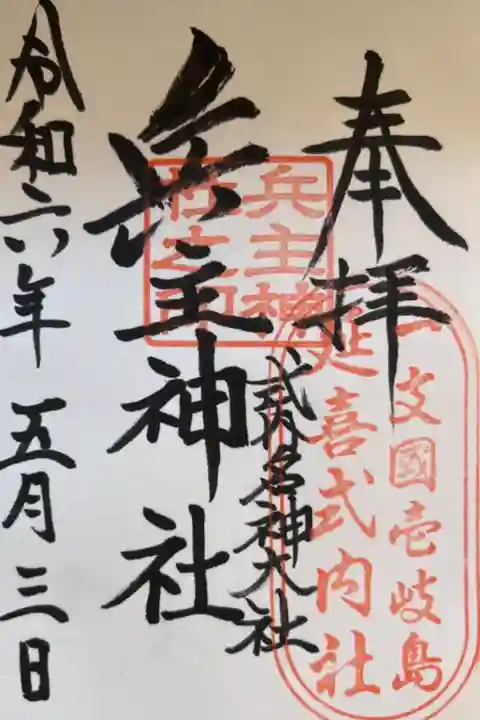 奉拝
一支國壱岐島
延喜式内社
式内名神大社
兵主神社
兵主神
社之印
令和六年 五月三日